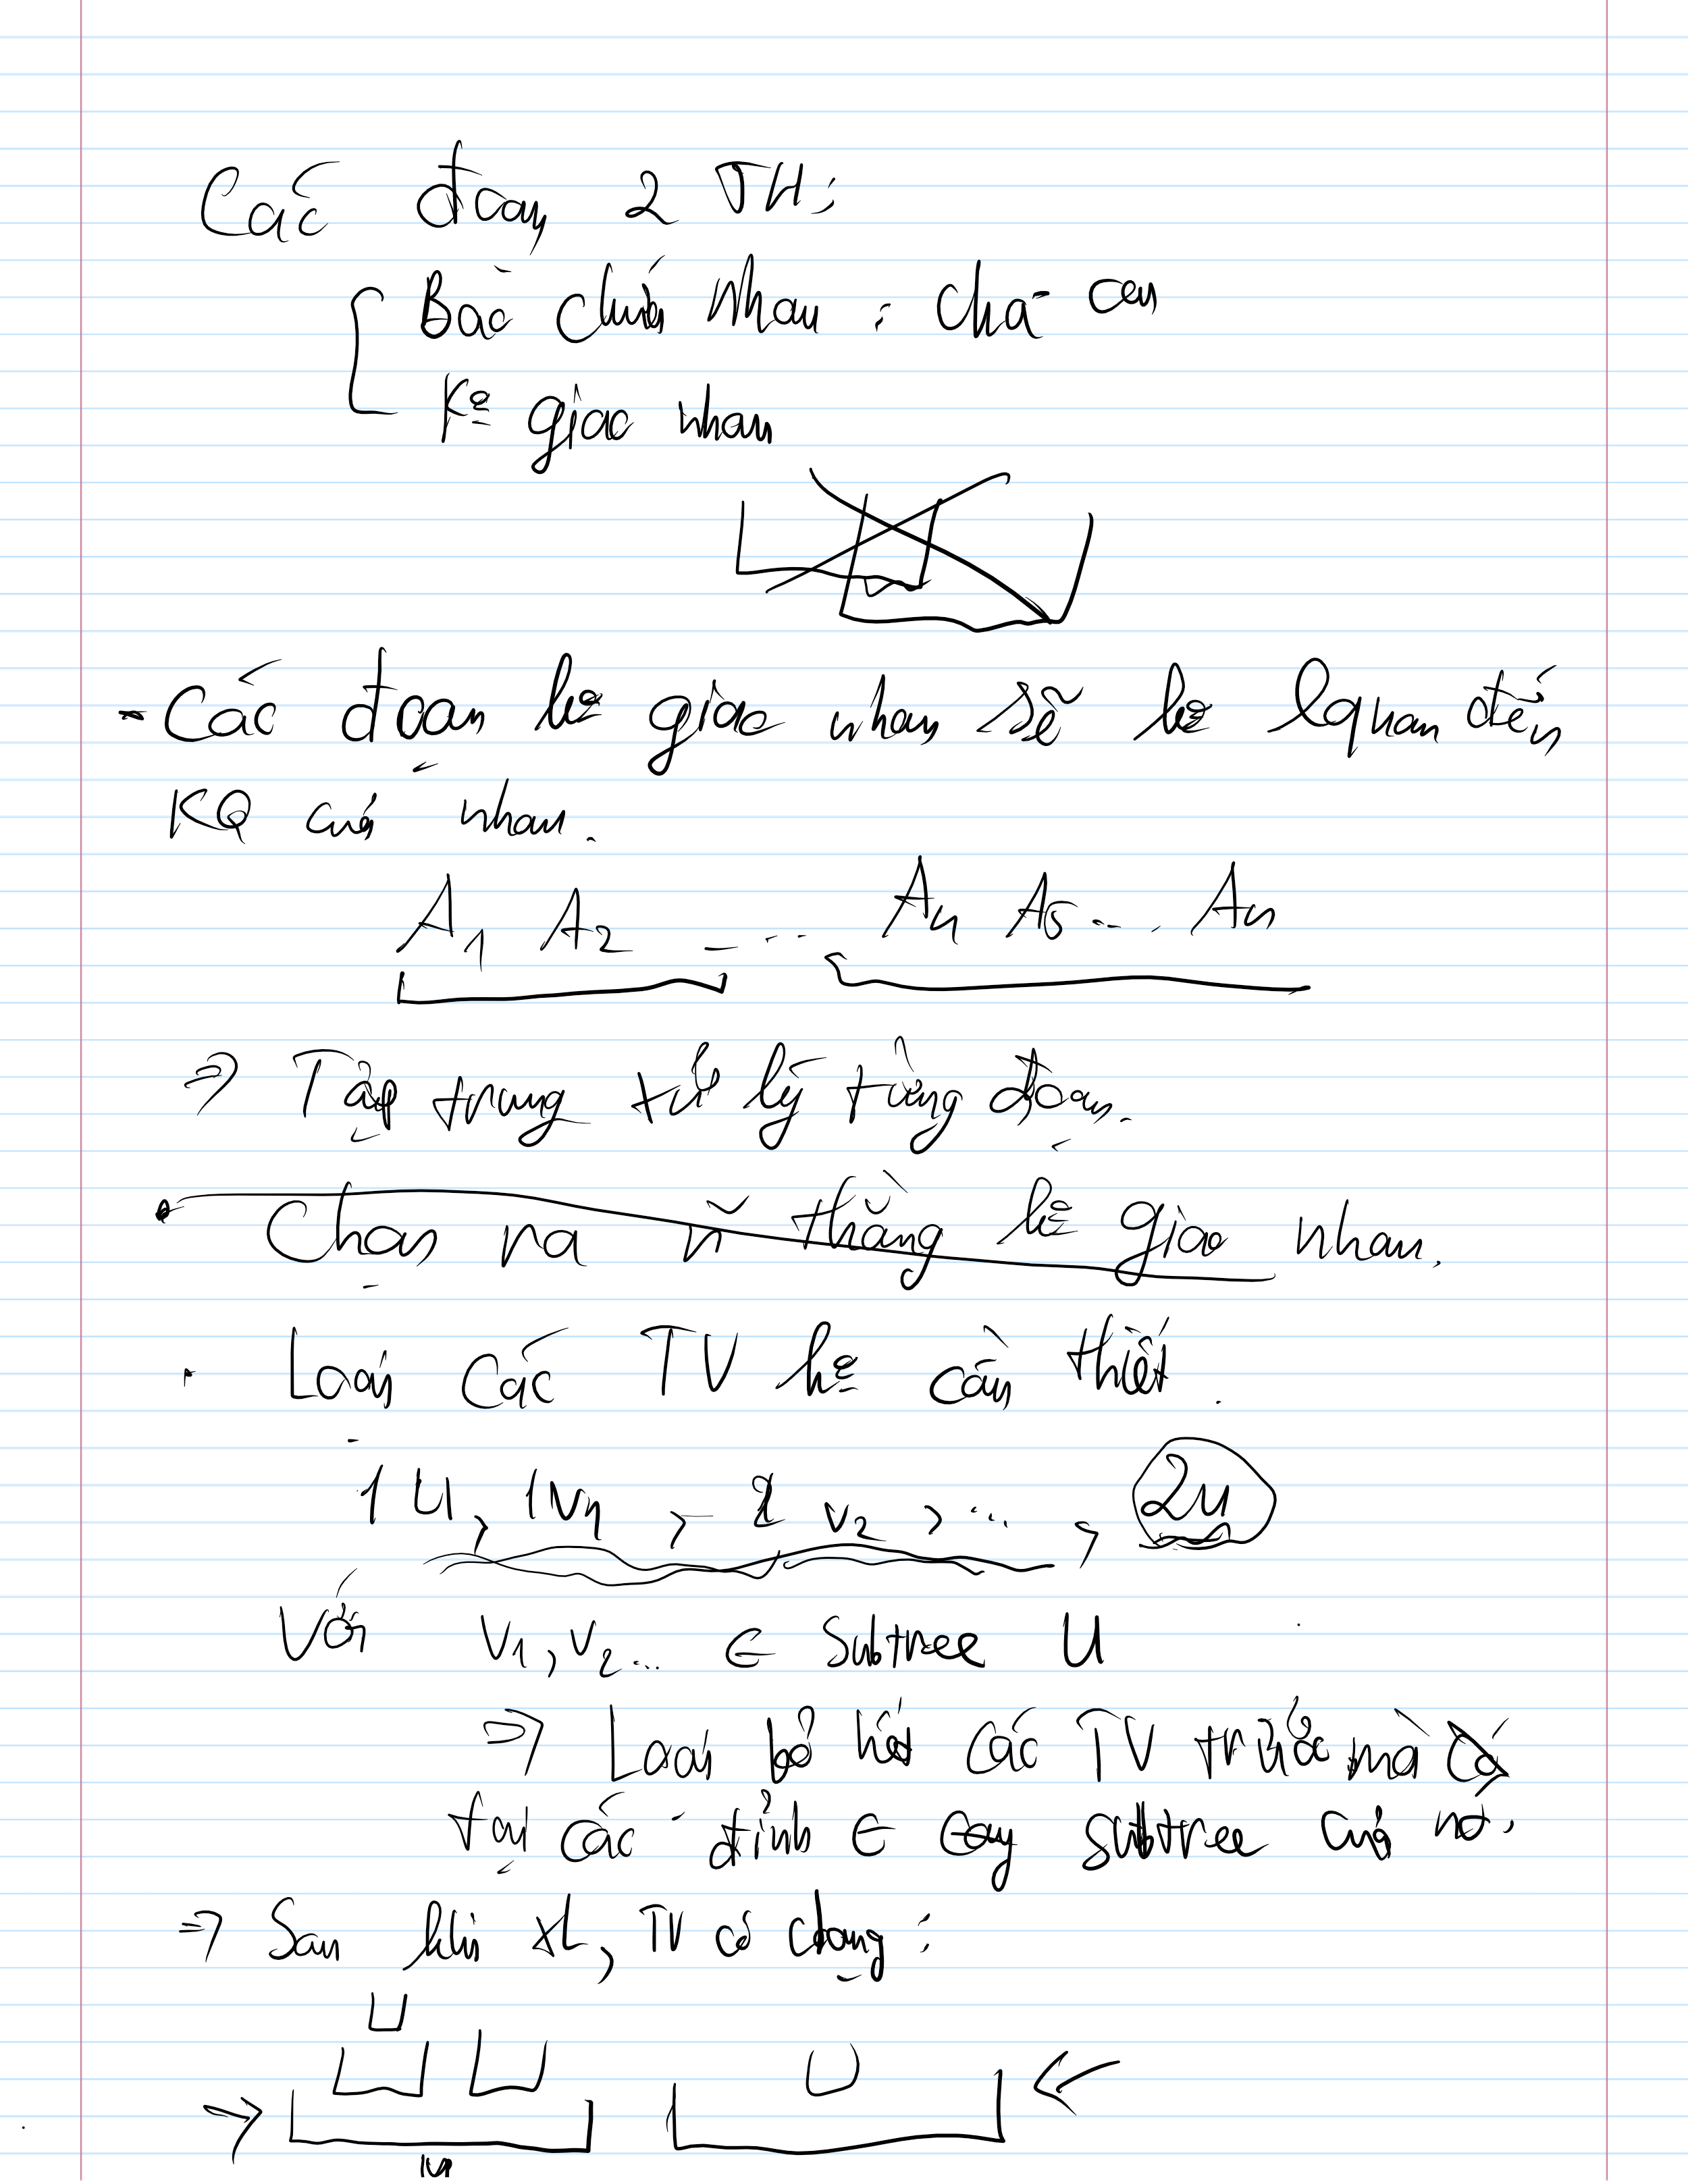 Các đoạn 2 TH:
Bao chứa nhau : cha - con
K° giao nhau
- Các đoạn k° giao nhau sẽ k° lquan đến
KQ của nhau.
A1 A2 ... A4 A5 ... An
⇒ Tập trung xử lý từng đoạn.
• Chọn ra n~ thằng k° giao nhau.
• Loại các TV k° cần thiết.
1 U, 1 V1, 2 V2, ..., 2 U
Với V1, V2... ∈ subtree U
⇒ Loại bỏ hết các TV trước mà
tại các đỉnh ∈ subtree của nó.
⇒ Sau khi XL, TV có dạng: